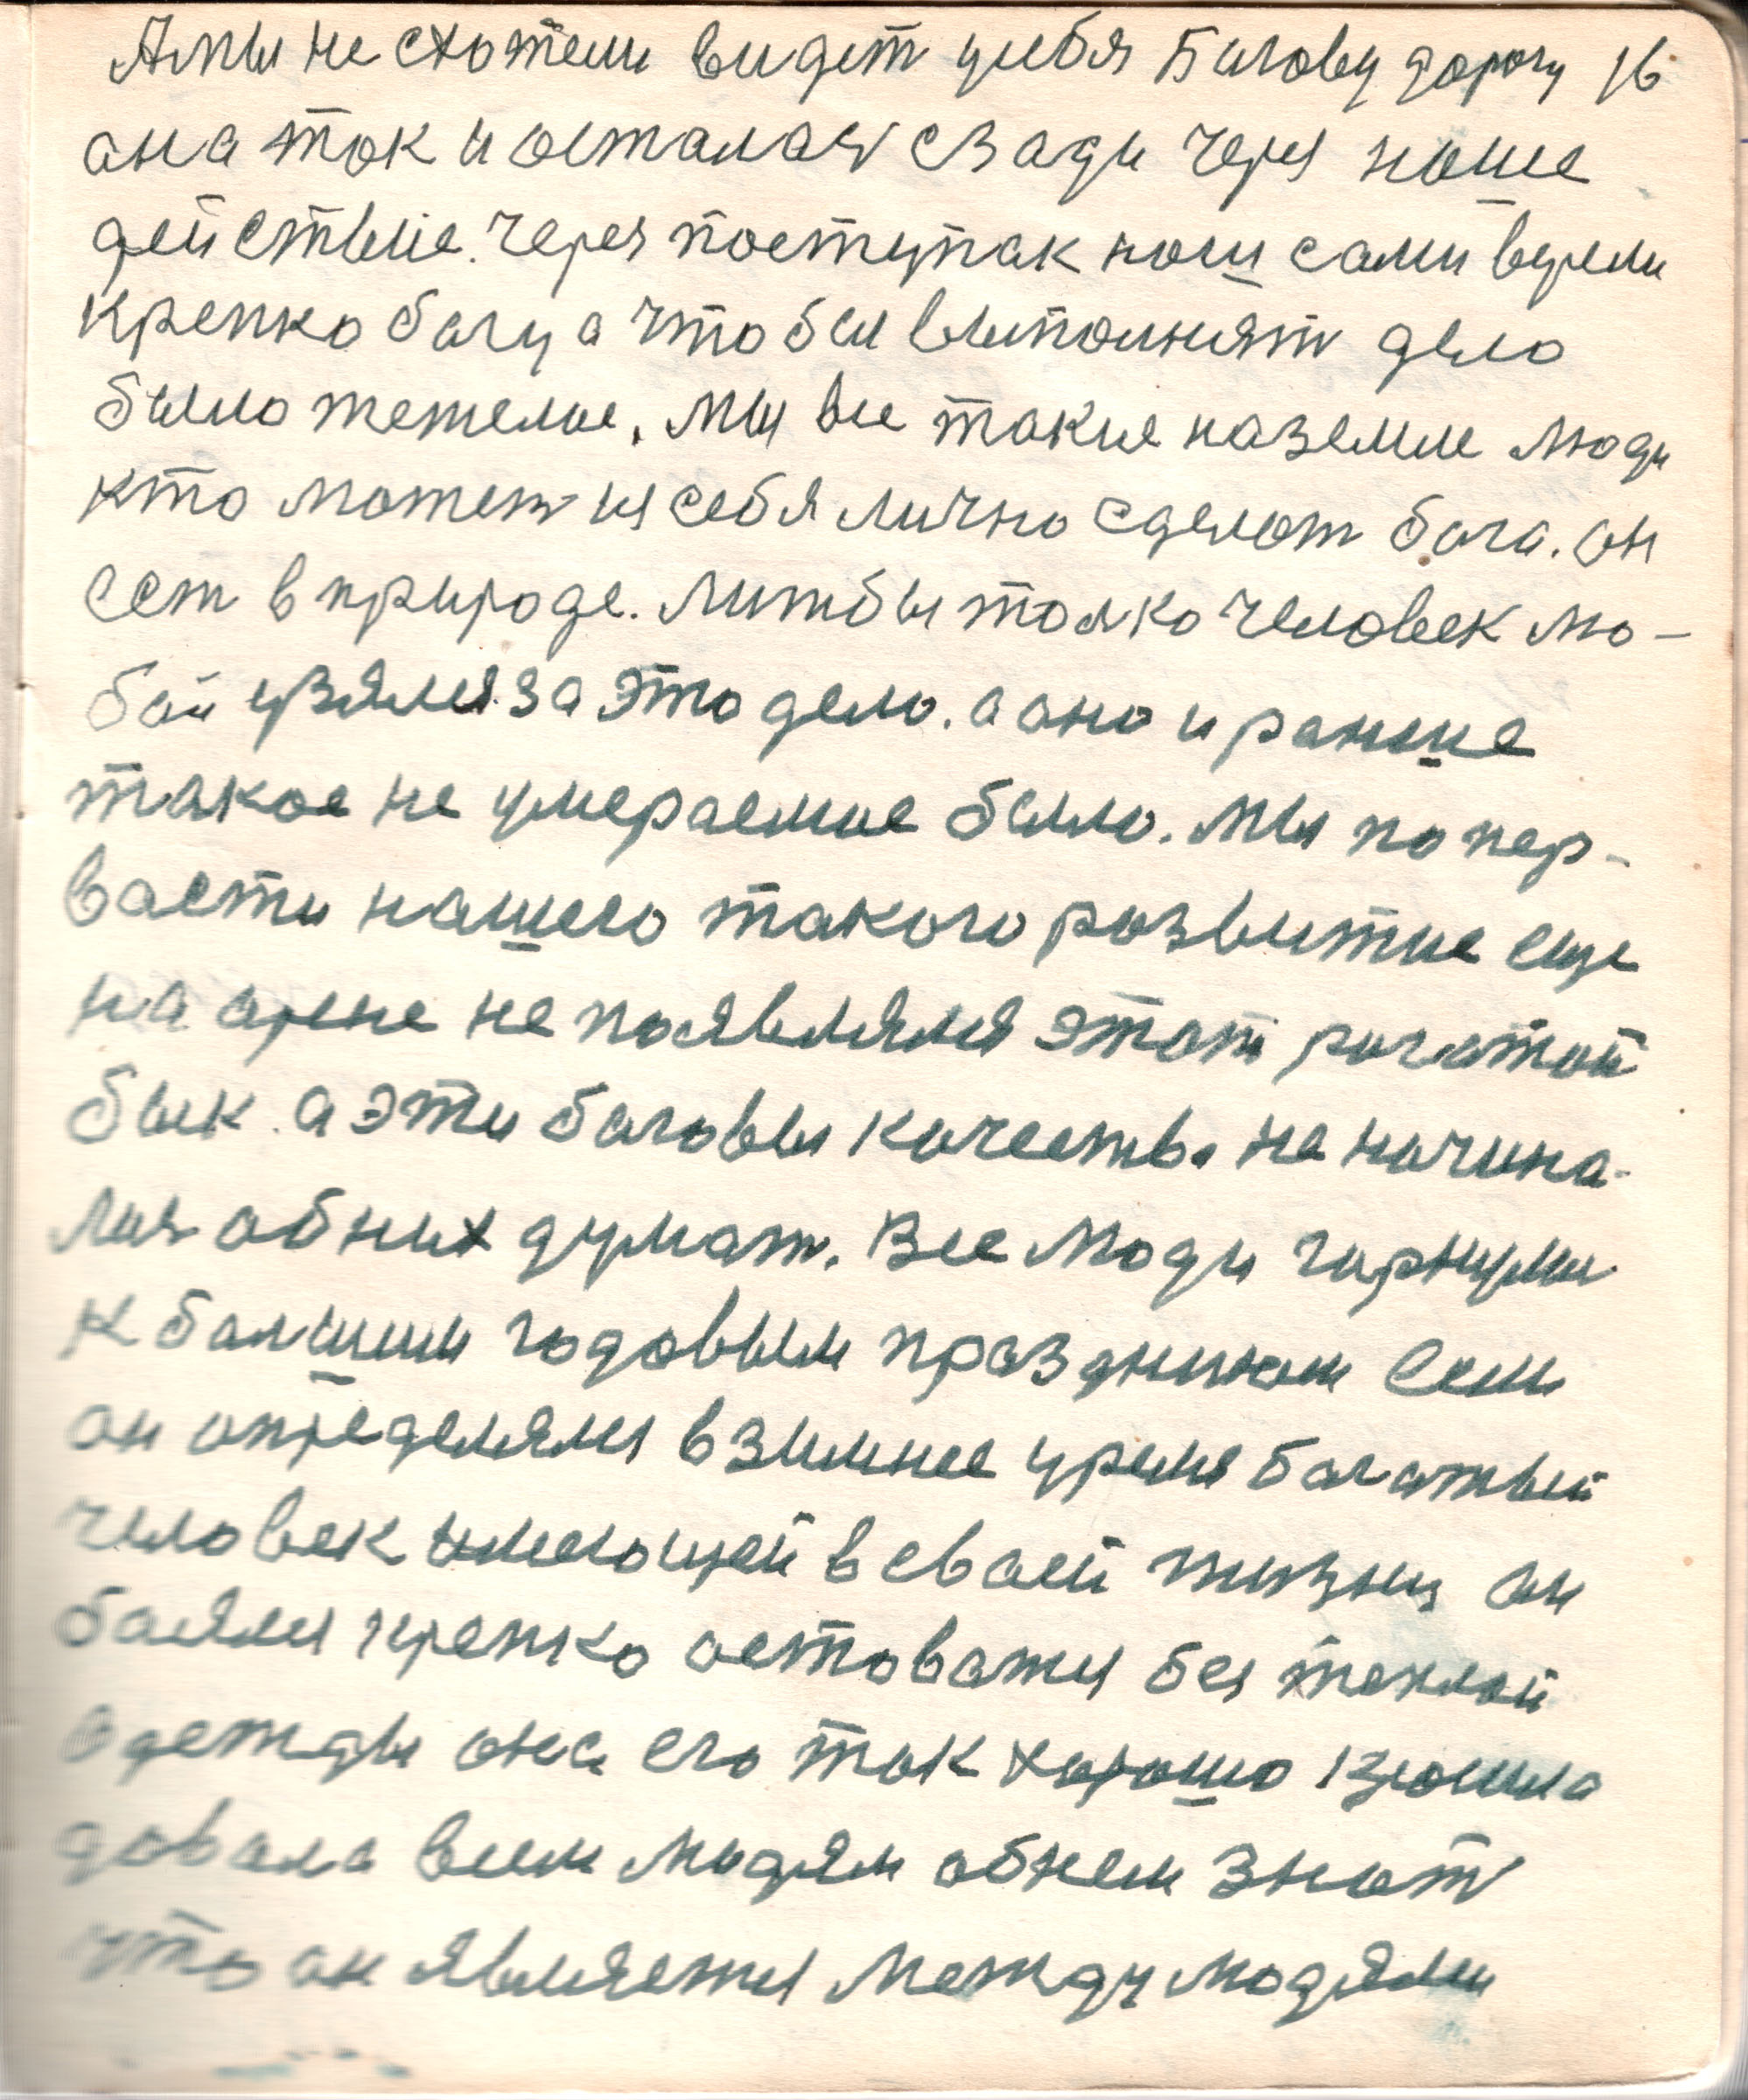 Амы не схотели видет усебя Багову дорогу 16
ана так и осталася сзади через наше
действие. Через поступак наш сами верели
крепко багу а что бы выполнят дело
было тежелое. Мы все такие наземле люди
кто может из себя лично сделат бога. он
ест в природе. Лижбы толко человек лю-
бой узялся за это дело. а оно и ранше
такое не умераемое было. Мы по пер-
васти нашего такого развитие еще
на арене не появлялся этот рогатой
бык. а эти баговы качества не начина-
лис об них думат. Все люди гарнули
к балшим годовым праздникам Сам
он определялся в зимнее уремя багатый
человек имеющей в своей жизни он
баялся крепко астоватся без теплой
одежды она его так хорошо
довала всем людям об нем знат
что он является между людями